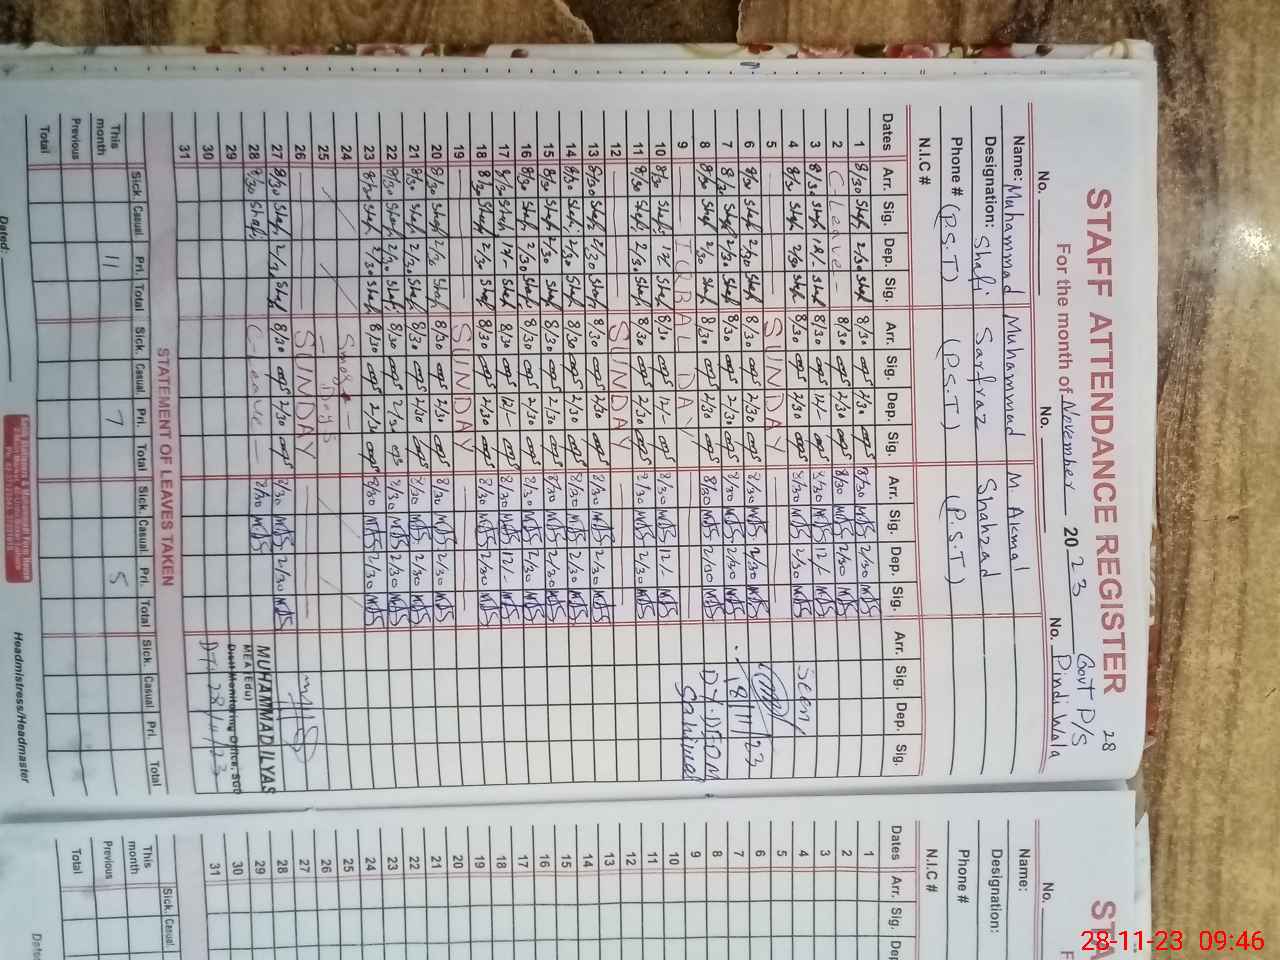 28
STAFF ATTENDANCE REGISTER
Govt P/S
Pindi Wala
For the month of November 2023
No. No. No.
Name: Muhammad Muhammad M. Akmal
Designation: Shafi Sarfraz Shahzad
Phone # (P.S.T) (P.S.T) (P.S.T)
N.I.C #
Dates Arr. Sig. Dep. Sig. Arr. Sig. Dep. Sig. Arr. Sig. Dep. Sig. Arr. Sig. Dep. Sig.
1 8/30 Shafi 2/30 Shafi 8/30 2/30 8/30 MAS 2/30 MAS
2 C-Leave- 8/30 2/30 8/30 MAS 2/30 MAS
3 8/30 Shafi 12/- Shafi 8/30 12/- 8/30 MAS 12/- MAS
4 8/30 Shafi 2/30 Shafi 8/30 2/30 8/30 MAS 2/30 MAS Seen
5 SUNDAY
6 8/30 Shafi 2/30 Shafi 8/30 2/30 8/30 MAS 2/30 MAS
7 8/30 Shafi 2/30 Shafi 8/30 2/30 8/30 MAS 2/30 MAS 8/11/23
8 8/30 Shafi 2/30 Shafi 8/30 2/30 8/30 MAS 2/30 MAS DY.DEO M
9 IQBAL DAY Sahiwal
10 8/30 Shafi 12/ Shafi 8/30 12/- 8/30 MAS 12/- MAS
11 8/30 Shafi 2/30 Shafi 8/30 2/30 8/30 MAS 2/30 MAS
12 SUNDAY
13 8/30 Shafi 2/30 Shafi 8/30 2/30 8/30 MAS 2/30 MAS
14 8/30 Shafi 2/30 Shafi 8/30 2/30 8/30 MAS 2/30 MAS
15 8/30 Shafi 2/30 Shafi 8/30 2/30 8/30 MAS 2/30 MAS
16 8/30 Shafi 2/30 Shafi 8/30 2/30 8/30 MAS 2/30 MAS
17 8/30 Shafi 12/- Shafi 8/30 12/- 8/30 MAS 12/- MAS
18 8/30 Shafi 2/30 Shafi 8/30 2/30 8/30 MAS 2/30 MAS
19 SUNDAY
20 8/30 Shafi 2/30 Shafi 8/30 2/30 8/30 MAS 2/30 MAS
21 8/30 Shafi 2/30 Shafi 8/30 2/30 8/30 MAS 2/30 MAS
22 8/30 Shafi 2/30 Shafi 8/30 2/30 8/30 MAS 2/30 MAS
23 8/30 Shafi 2/30 Shafi 8/30 2/30 8/30 MAS 2/30 MAS
24 Smog
25 Days
26 SUNDAY
27 8/30 Shafi 2/30 Shafi 8/30 2/30 8/30 MAS 2/30 MAS
28 8/30 Shafi C-Leave- 8/30 MAS
MUHAMMAD ILYAS
MEA (Edu)
29 Distt Monitoring Office, SGD
30 DT. 28/11/23
31
STATEMENT OF LEAVES TAKEN
Sick. Casual Pri. Total Sick. Casual. Pri. Total Sick. Casual. Pri. Total Sick. Casual Pri. Total
This month 11 7 5
Previous
Total
Dated:
Headmistress/Headmaster
STA
F
No.
Name:
Designation:
Phone #
N.I.C #
Dates Arr. Sig. De
1
2
3
4
5
6
7
8
9
10
11
12
13
14
15
16
17
18
19
20
21
22
23
24
25
26
27
28
29
30
31
Sick. Casual
This month
Previous
Total
28-11-23 09:46